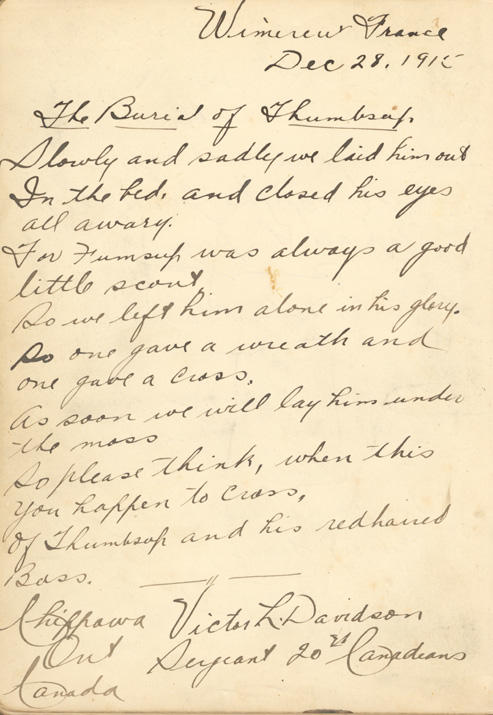 Wimereux France
Dec 28, 1915
The Burial of Thumbsup.
Slowly and sadly we laid him out
In the bed, and closed his eyes
all awary.
For Fumsup was always a good
little scout,
So we left him alone in his glory.
So one gave a wreath and
one gave a Cross,
As soon we will lay him under
the moss
So please think, when this
you happen to Cross,
Of Thumbsup and his redhaired
Boss.
Chippawa Victor L. Davidson
Ont Sergeant 20th Canadians
Canada